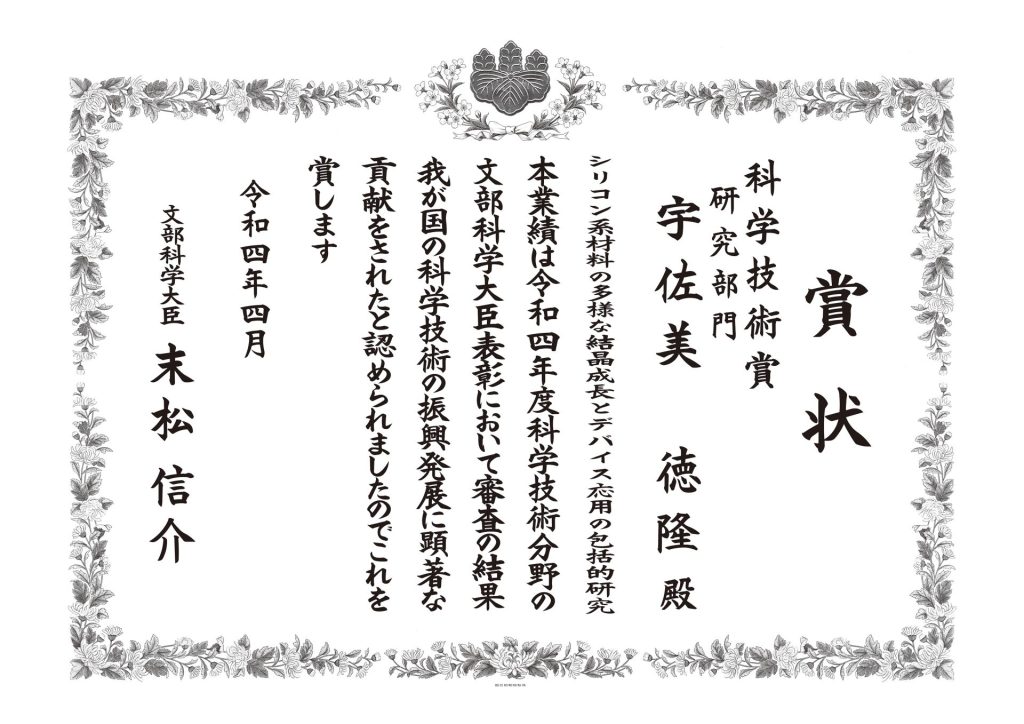 賞状
科学技術賞
研究部門
宇佐美 徳隆 殿
シリコン系材料の多様な結晶成長とデバイス応用の包括的研究
本業績は令和四年度科学技術分野の
文部科学大臣表彰において審査の結果
我が国の科学技術の振興発展に顕著な
貢献をされたと認められましたのでこれを
賞します
令和四年四月
文部科学大臣 末松 信介